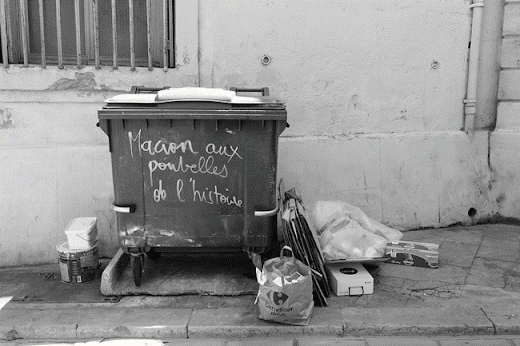 Macron aux
poubelles
de l'histoire
Carrefour